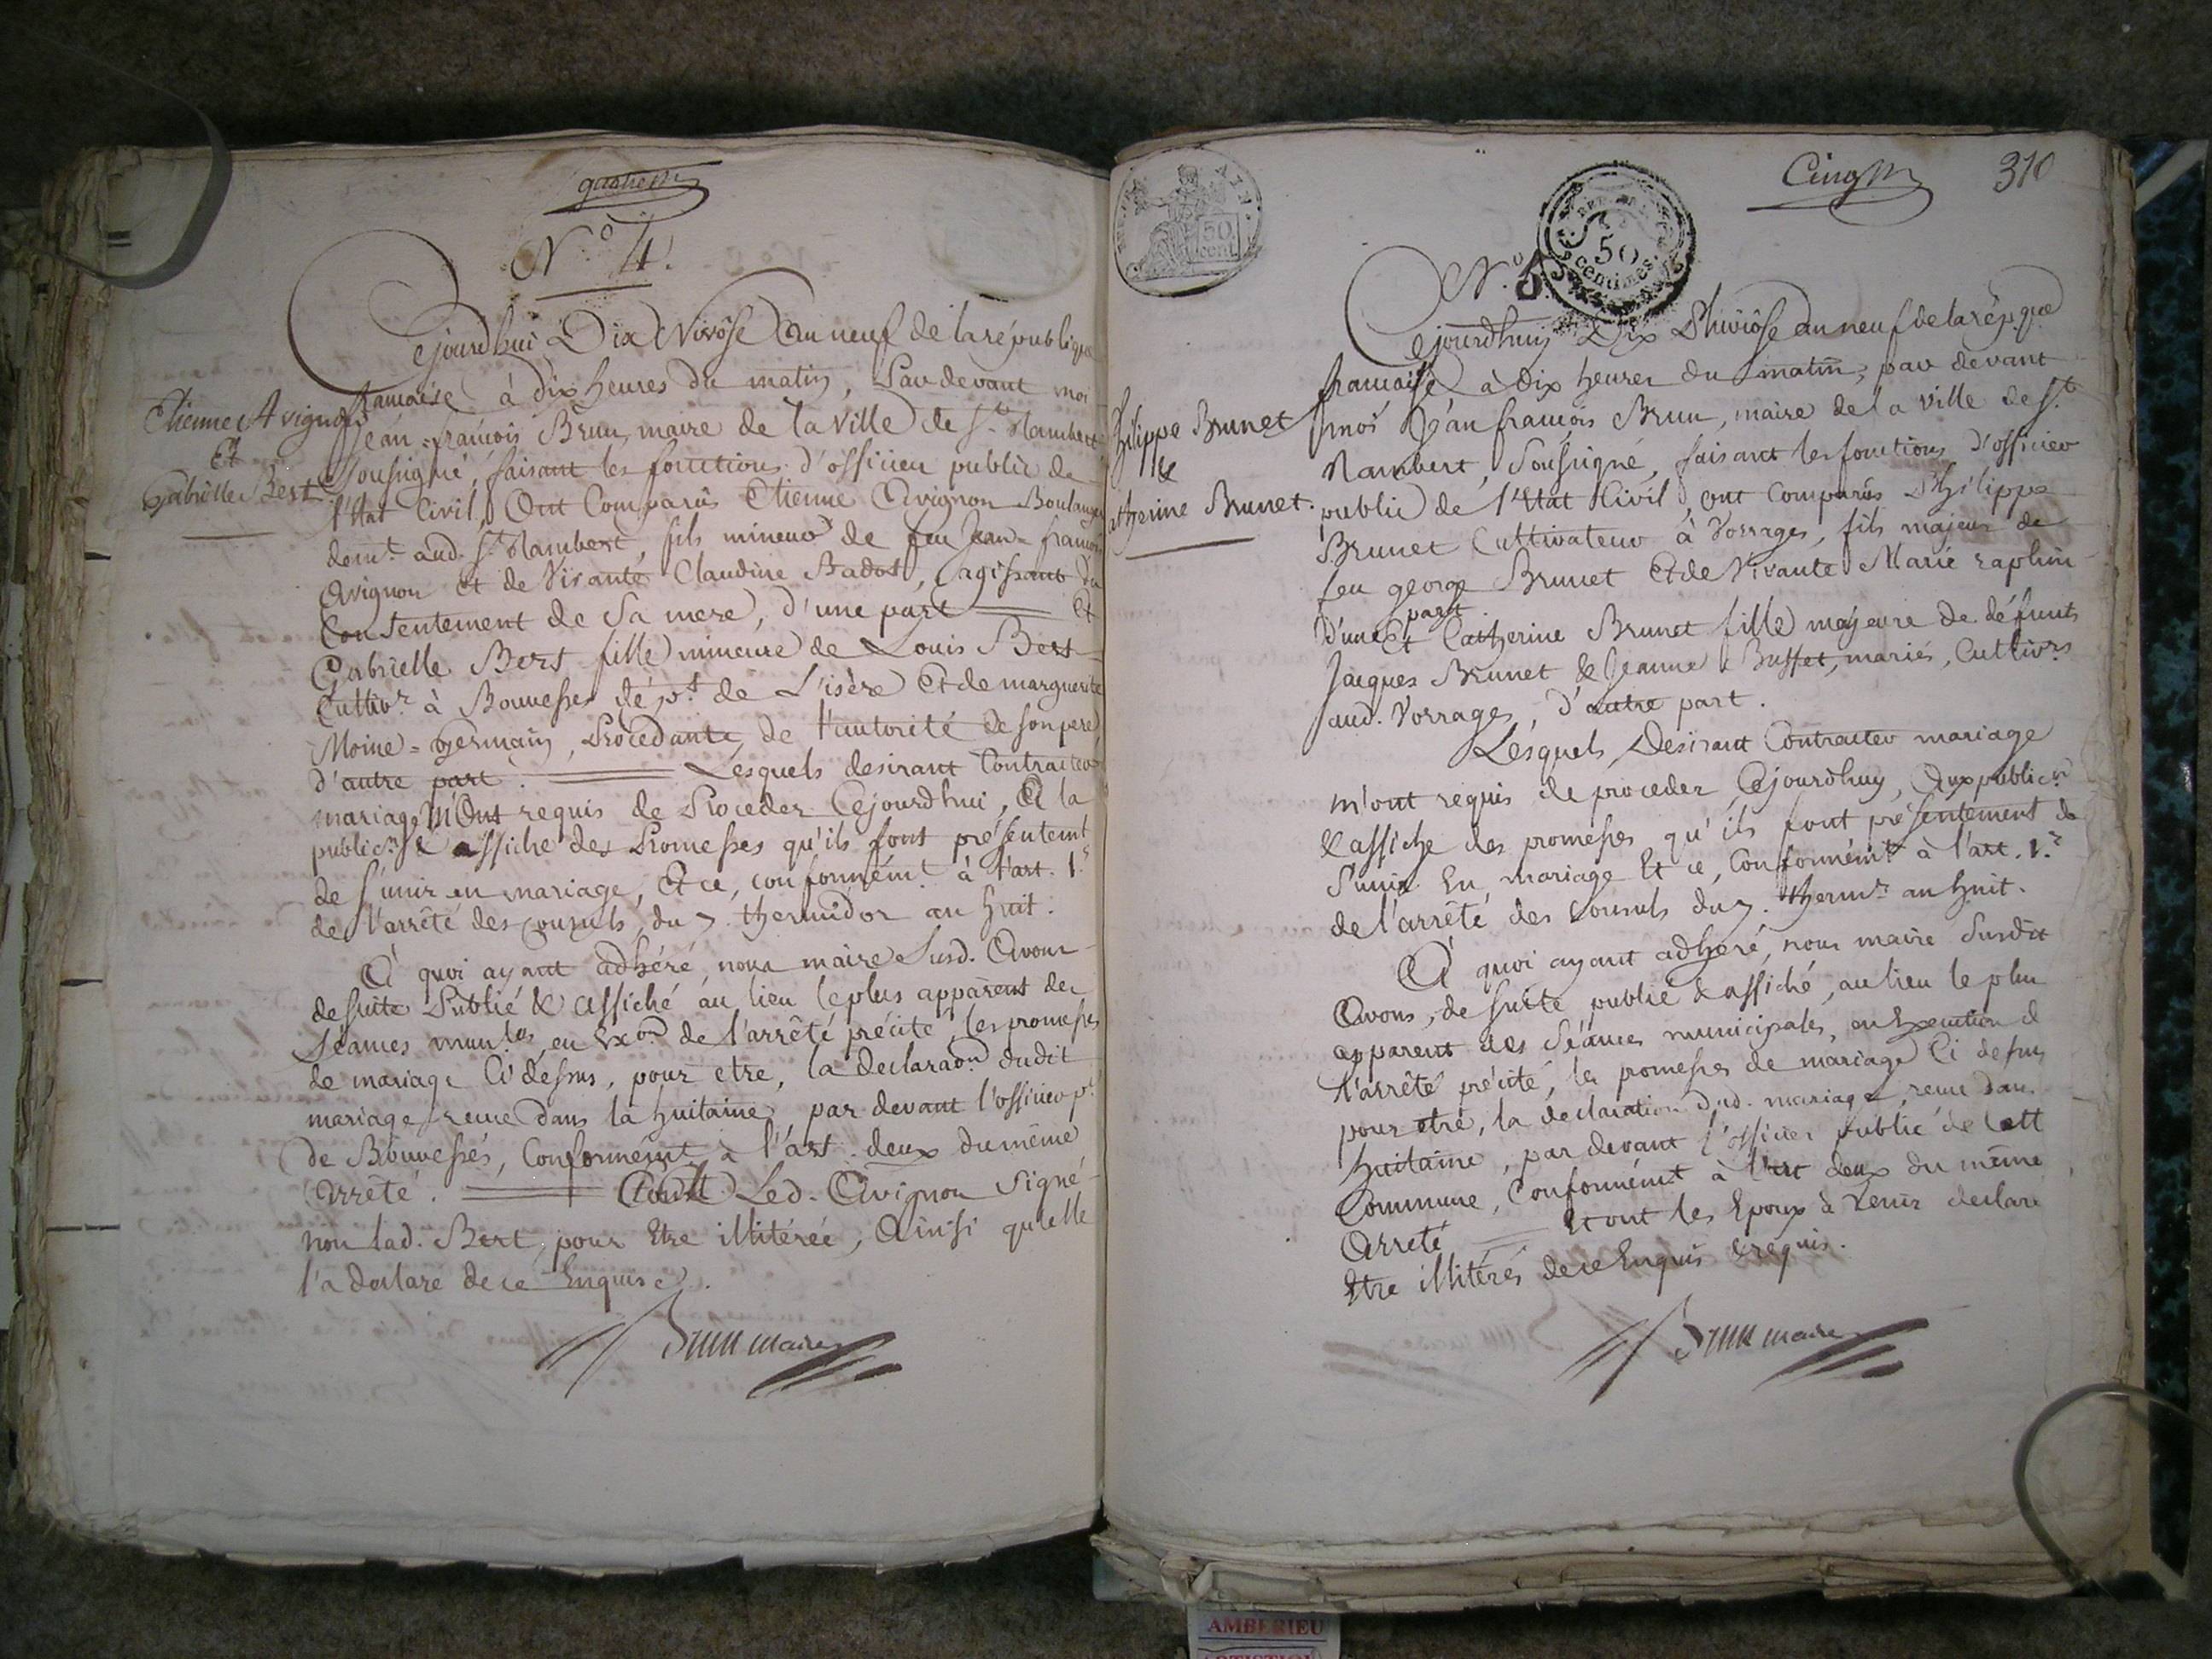 quatre
N.° 4.
Cejourdhui Dix Nivôse an neuf de la république
francaise à dix heures du matin, Par devant moi
Etienne Avignon
Et
Gabrielle Bert
Jean-françois Brun, maire de la ville de St. Rambert
Soussigné, faisant les fonctions d'officier public de
l'Etat Civil, Ont Comparûs Etienne Avignon Boulanger
demt. aud. St. Rambert, fils mineur de feu Jean-francois
Avignon et de Vivante Claudine Badot, agissant du
Consentement de sa mere, d'une part Et
Gabrielle Bert fille mineure de Louis Bert
Cultivr. à Bouvesses dépt. de L'isère Et de marguerite
Moine-germain, Procedante, de l'autorité de son pere
d'autre part. Lesquels desirant Contracter
mariage M'Ont requis de Proceder Cejourdhui, A la
publicon. & affiche des Promesses qu'ils font présentemt.
de s'unir en mariage, Et ce, conformémt. à l'art. 1.er
de l'arrêté des consuls, du 7. thermidor an huit.
A quoi ayant adhéré, nous maire Susd. Avons
de suite Publié & affiché au lieu le plus apparent des
Séances munles. en Exon. de l'arrêté précité, les promesses
de mariage Ci dessus, pour etre, la declaraon. dudit
mariage reçue dans la huitaine, par devant l'officier p.
de Bouvesses, Conformémt. à l'art. deux du même
Arrêté. Led. Avignon Signé
non lad. Bert, pour Etre illitérée, Ainsi qu'elle
l'a declaré de ce Enquise.
Brun maire
Cinq
310
50 cent
REP. FRA.
50
centimes.
N.° 5.
Cejourdhuy Dix Nivôse an neuf de la répque.
francaise à dix heures du matin, par devant
Philippe Brunet
&
Catherine Brunet.
moi Jean francois Brun, maire de la ville de St.
Rambert, Soussigné, faisant les fonctions d'officier
public de l'Etat Civil, ont Comparûs Philippe
Brunet Cultivateur à Vorrages, fils majeur de
feu george Brunet Et de Vivante Marie raphin
d'une part. Et Catherine Brunet fille majeure de défunts
Jacques Brunet & Jeanne Buffet, mariés, Cultivrs.
aud. Vorrages, d'autre part.
Lesquels Desirant Contracter mariage
m'ont requis de proceder Cejourdhuy, Aux publicon.
& affiche des promesses qu'ils font présentement de
S'unir En mariage Et ce, Conformémt. à l'art. 1.er
de l'arrêté des consuls du 7. thermr. an huit.
A quoi ayant adhéré, nous maire Susdit
Avons, de suite publié & affiché, au lieu le plus
apparent des Séances municipales, en Execution de
l'arrêté précité, les promesses de mariage Ci dessus
pour etre, la declaration dud. mariage, reçue dans
huitaine, par devant l'officier public de Cett
Commune, Conformémt. à l'art deux du même
Arreté Et ont les Epoux à venir declaré
Etre illitérés de ce Enquis & requis.
Brun maire
AMBERIEU